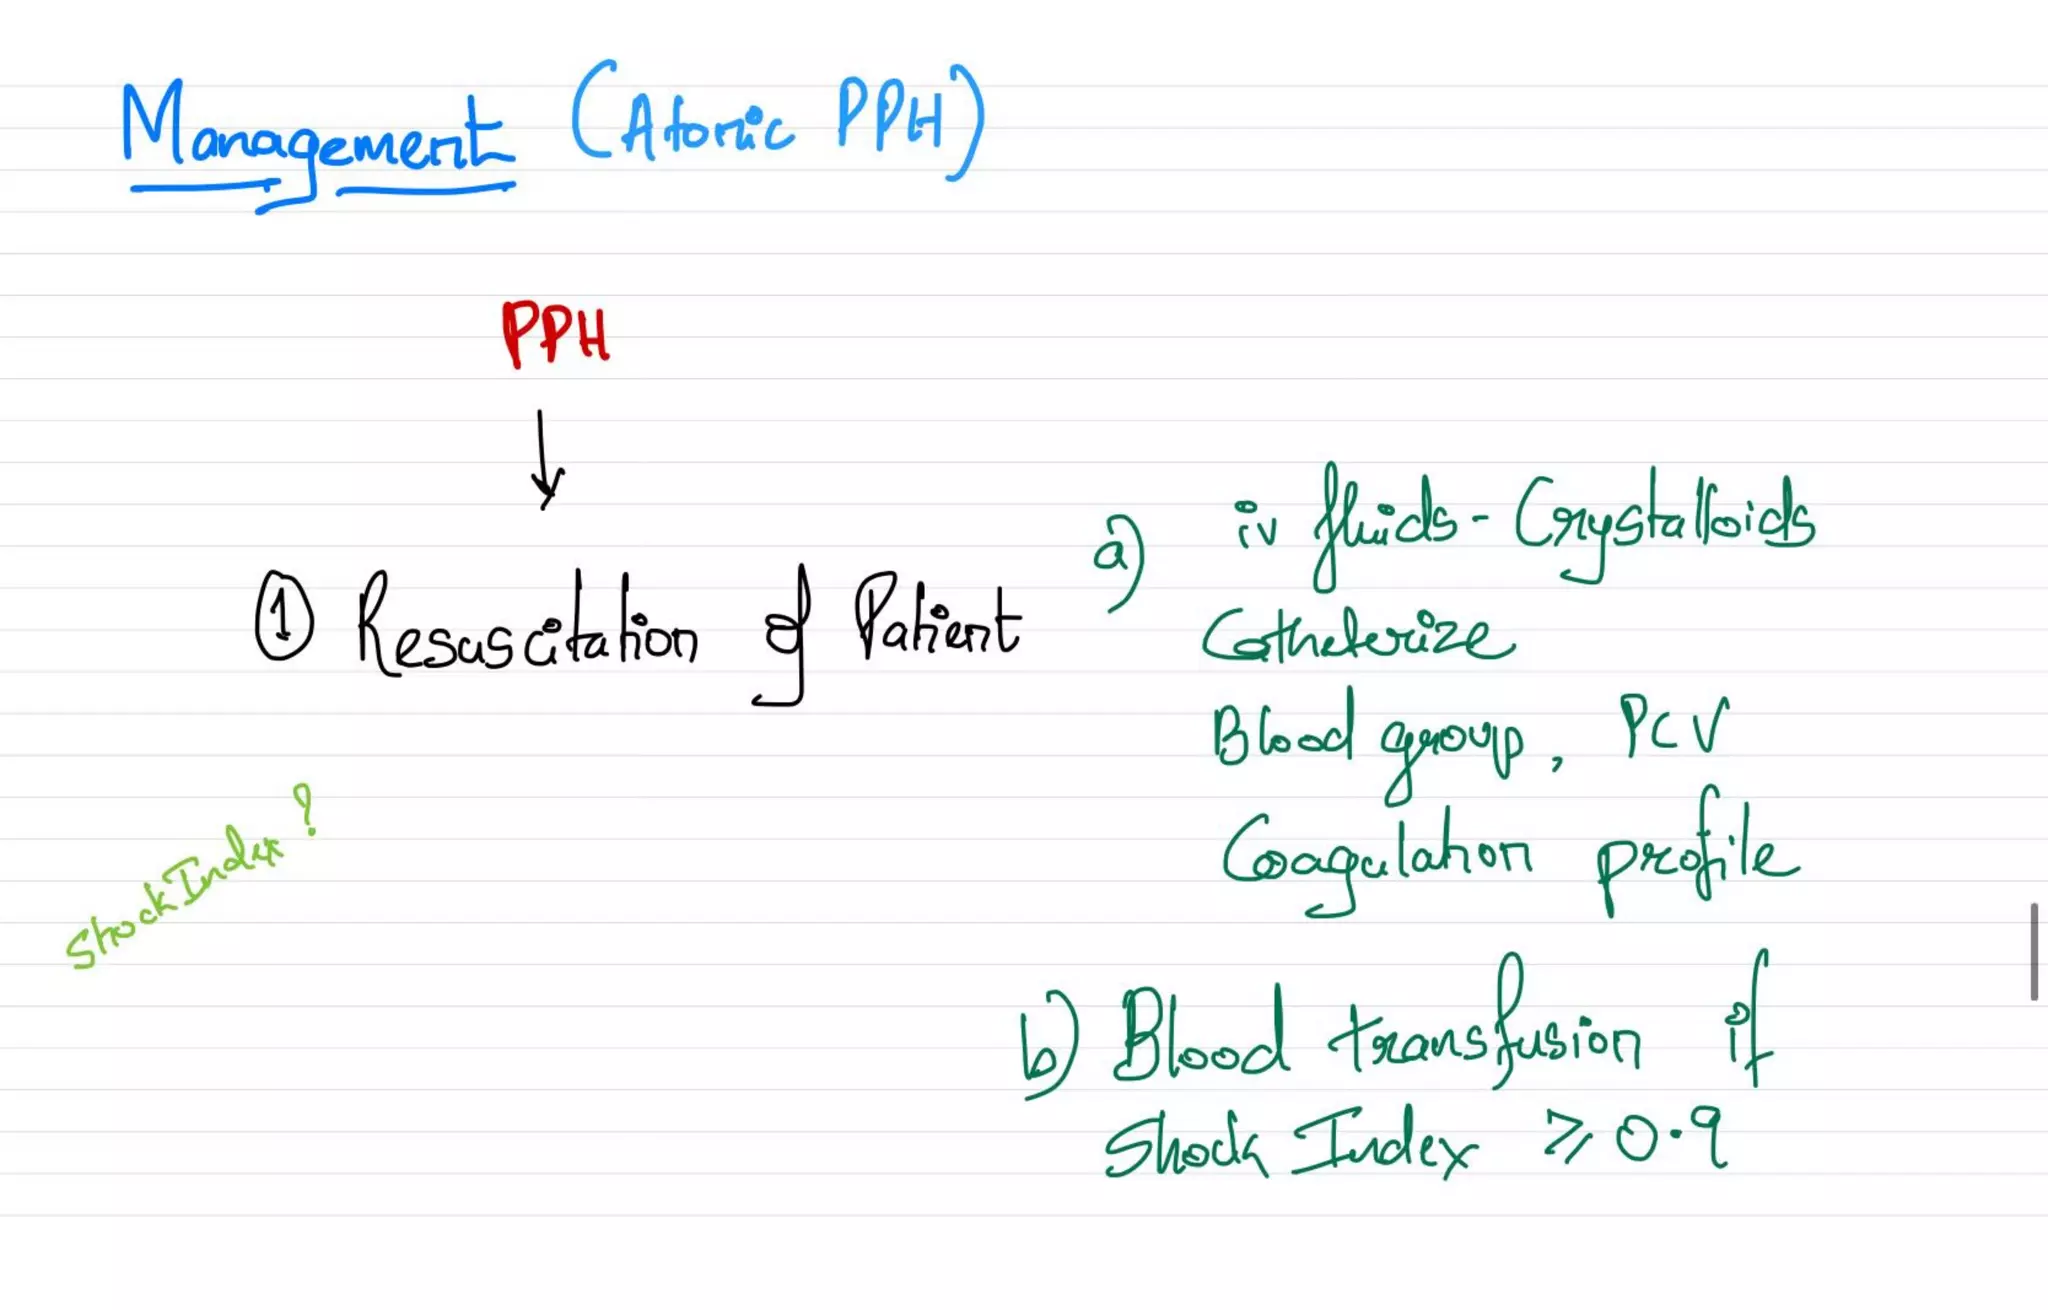 Management (Atonic PPH)
PPH
① Resuscitation of Patient
a) iv fluids - Crystalloids
Catheterize
Blood group, PCV
Coagulation profile
Shock Index?
b) Blood transfusion if
Shock Index ⩾ 0.9